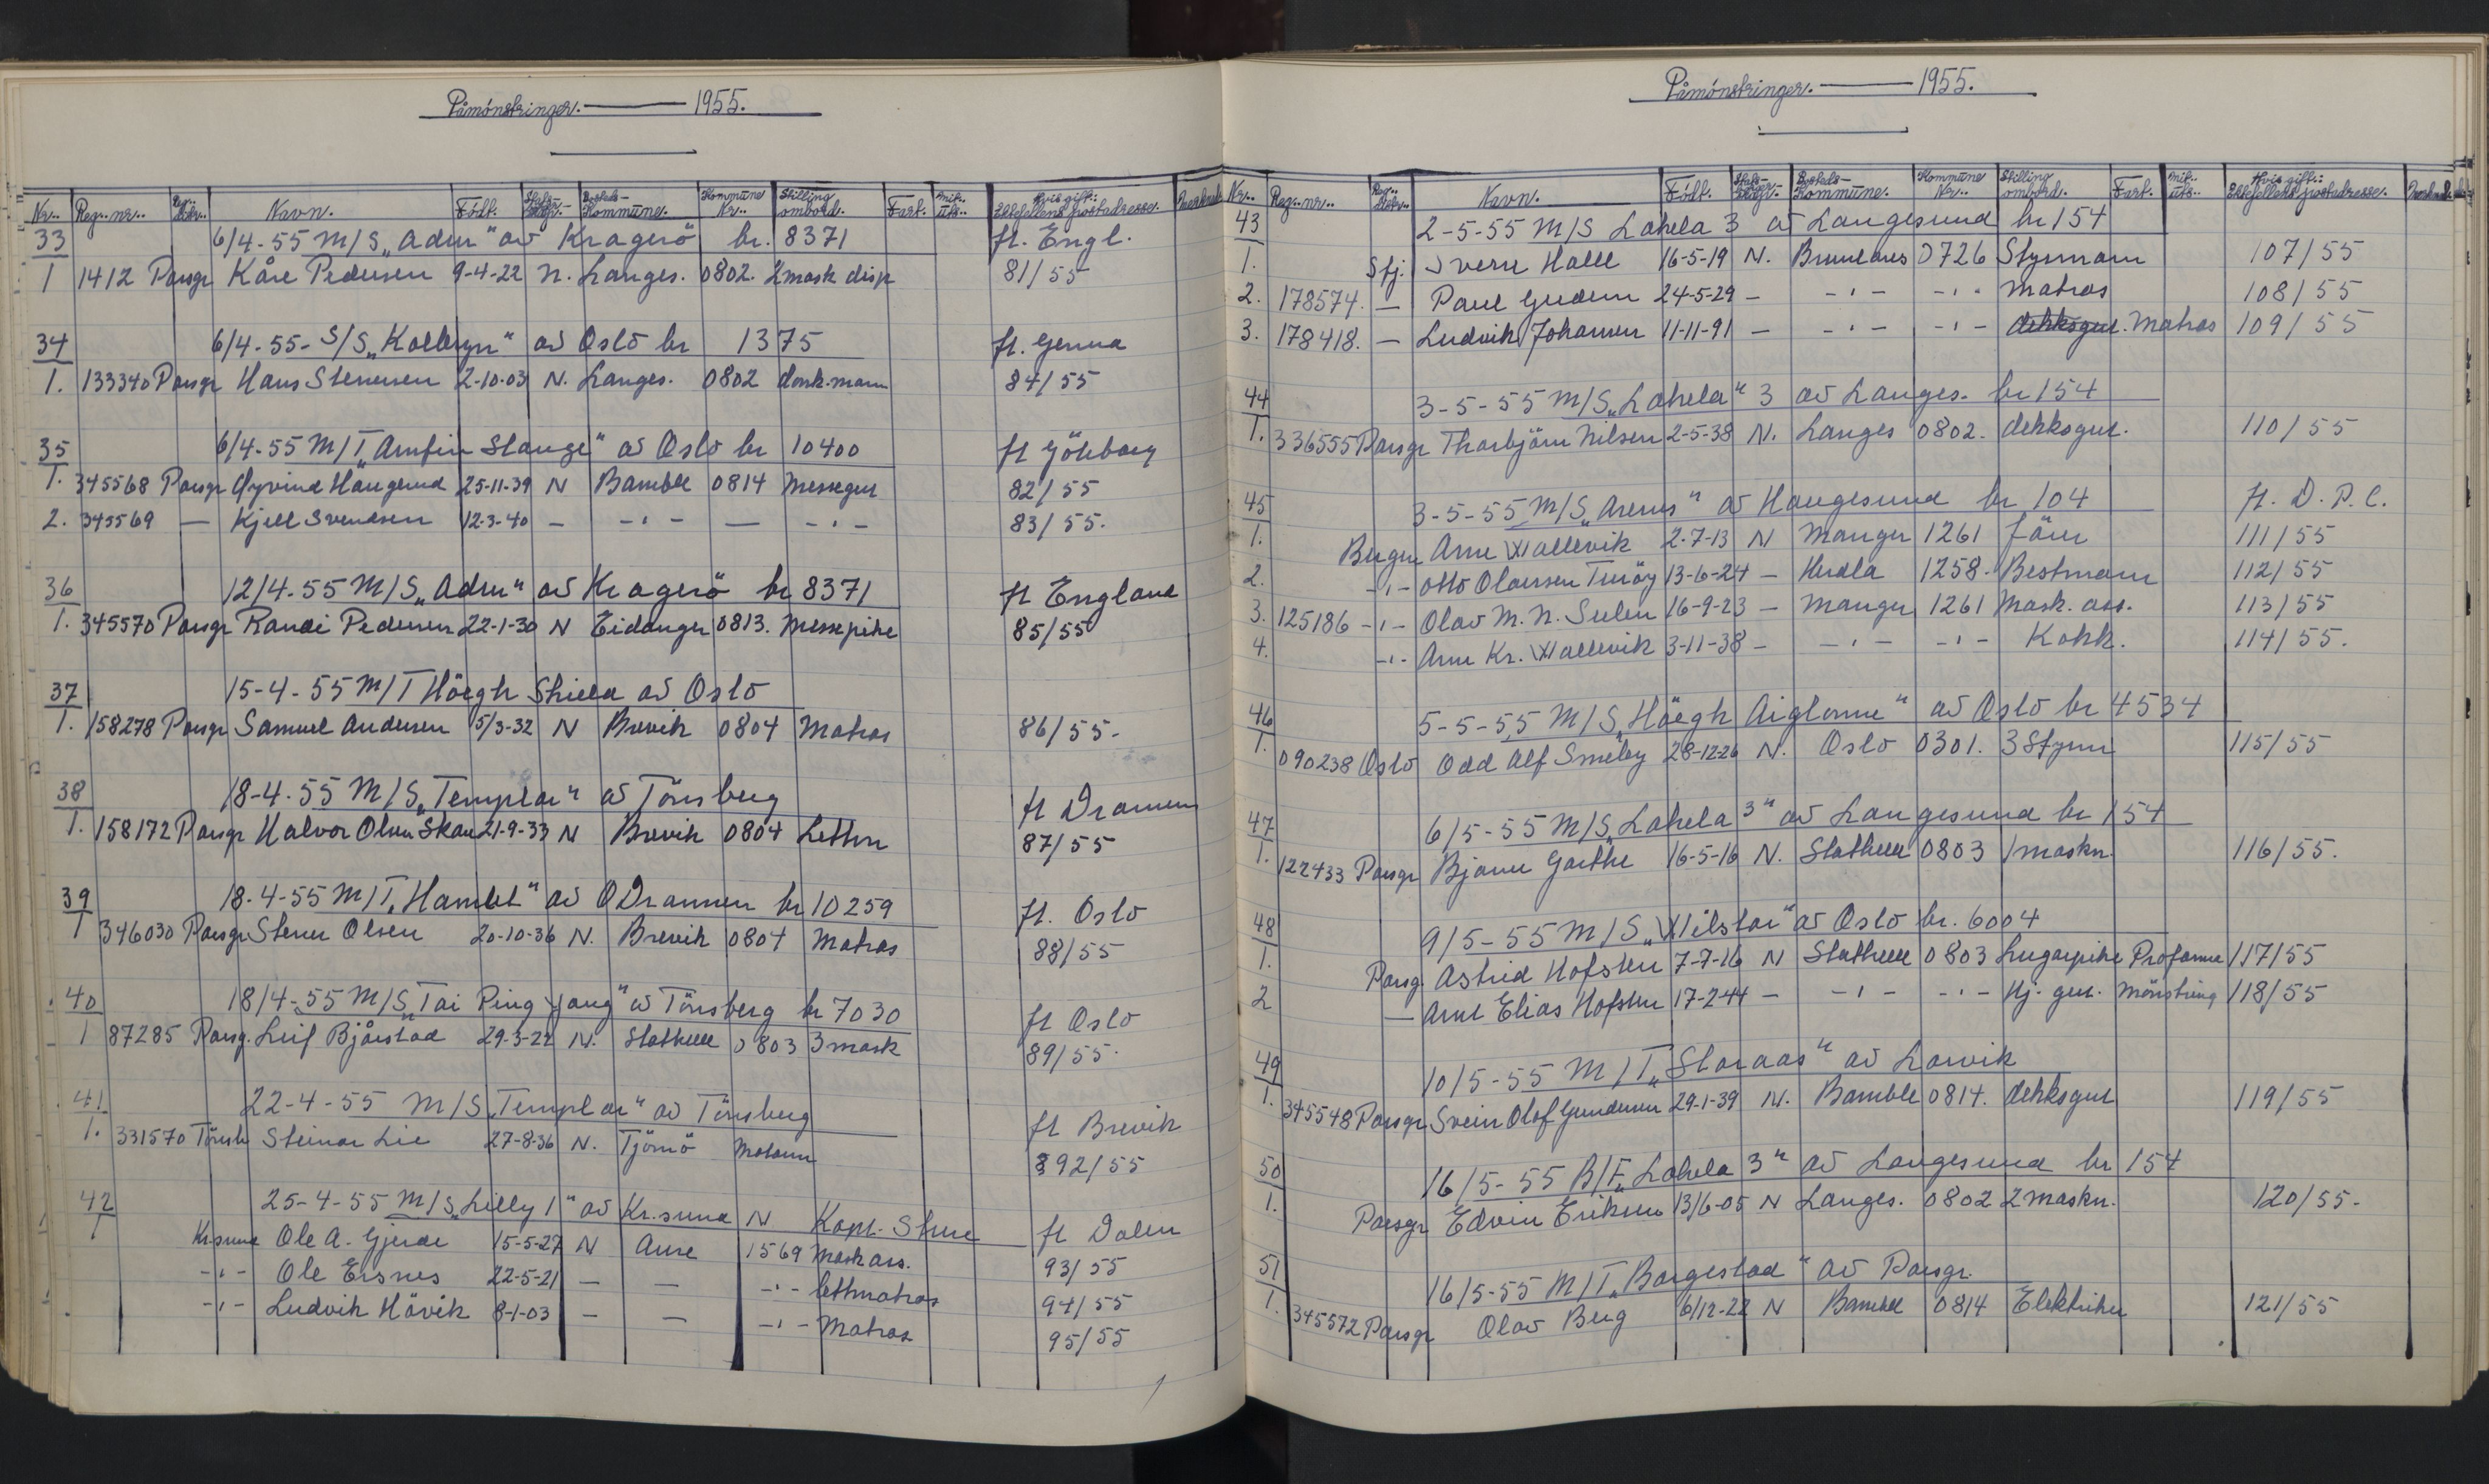 Påmönstringer. — 1955.
Nr.. Reg.-nr.. Reg. distr.. Navn. Födt. Stats-borger.- Bosteds-Kommune. Kommune Nr.. Stilling ombord. Fart. Mit.. uts.. Hvis gift: Ektefellens postadresse.
33 6/4-55 M/S „Adur" av Kragerö br. 8371 ft. Engl.
1 1412 Porsgr Kåre Pedersen 9-4-22 N. Langes. 0802. 2 mask disp 81/55
34 6/4-55- S/S „Kollbryn" av Oslo br 1375 ft. Genua
1. 133340 Porsgr Hans Stenersen 2-10-03 N. Langes. 0802 donk.mann 84/55
35 6/4-55 M/T „Arnfin Stange" av Oslo br 10400 ft Göteborg
1. 345568 Porsgr Øyvind Haugerud 25-11-39 N Bamble 0814 Messegut 82/55
2. 345569 — Kjell Svendsen 12-3-40 — -"- — -"- 83/55.
36 12/4-55 M/S „Adur" av Kragerö br 8371 ft England
1. 345570 Porsgr Randi Pedersen 22-1-30 N Eidanger 0813. Messepike 85/55
37 15-4-55 M/T Höegh Shield av Oslo
1. 158278 Porsgr Samuel Andersen 5/3-32 N Brevik 0804 Matros 86/55-
38 18-4-55 M/S „Templar" av Tönsberg ft Drammen
1. 158172 Porsgr Halvor Olsen Skau 21-9-33 N Brevik 0804 Lettm 87/55
39 18-4-55 M/T „Hamlet" av Drammen br 10259 ft. Oslo
1 346030 Porsgr Stener Olsen 20-10-36 N. Brevik 0804 Matros 88/55
40 18/4-55 M/S „Tai Ping Yang" av Tönsberg br 7030 ft Oslo
1 87285 Porsg. Leif Bjårstad 29-3-22 N. Stathelle 0803 3 mask 89/55.
41 22-4-55 M/S „Templar" av Tönsberg ft Brevik
1. 331570 Tönsb Steinar Lie 27-8-36 N. Tjömö Motorm 92/55
42 25-4-55 M/S „Lilly 1" av Kr.sund N. Kapt. ft Dalen
1 Kr.sund Ole A. Gjerde 15-5-27 N Aure 1569 Mask ass. 93/55
-"- Ole Ersnes 22-5-21 — — -"- lettmatros 94/55
-"- Ludvik Hövik 8-1-03 — — -"- Matros 95/55
Påmönstringer. — 1955.
Nr.. Reg.-nr.. Reg.. distr.. Navn. Födt. Stats-borger.- Bosteds-Kommune. Kommune Nr.. Stilling ombord. Fart. Mit.. uts.. Hvis gift: Ektefellens postadresse.
43 2-5-55 M/S Lakela 3 av Langesund br 154
1. Sfj. Sverre Halle 16-5-19 N. Brunlanes 0726 Styrmann 107/55
2. 178574. — Paul Gudem 24-5-29 — -"- -"- Matros 108/55
3. 178418. — Ludvik Johansen 11-11-91 — -"- -"- dekksgut. Matros 109/55
44 3-5-55 M/S „Lakela" 3 av Langes. br 154
1. 336555 Porsgr Thorbjörn Nilsen 2-5-38 N. Langes 0802. dekksgut. 110/55
45 3-5-55 M/S „Arenes" av Haugesund br 104 ft. D.P.C.
1. Bergen Arne Wallevik 2-7-13 N Manger 1261 förer 111/55
2. -"- Otto Olaussen Turöy 13-6-24 — Herdla 1258. Bestmann 112/55
3. 125186 -"- Olav M. N. Seelen 16-9-23 — Manger 1261 Mask. ass. 113/55
4. -"- Arne Kr. Wallevik 3-11-38 — -"- -"- Kokk. 114/55.
46 5-5-55 M/S „Höegh Aiglonne" av Oslo br 4534
1. 090238 Oslo Odd Alf Smeby 28-12-26 N. Oslo 0301. 3 Styrm 115/55
47 6/5-55 M/S „Lakela 3" av Langesund br 154
1. 122433 Porsgr Bjarne Goethe 16-5-16 N. Stathelle 0803 1 maskn. 116/55.
48 9/5-55 M/S „Wilstar" av Oslo br. 6004
1. Porsg. Astrid Hofsten 7-7-16 N Stathelle 0803 Lugarpike Proforma 117/55
2 — Arnt Elias Hofsten 17-2-44 — -"- -"- Hj. gut. Mönstring 118/55
49 10/5-55 M/T „Storaas" av Larvik
1. 345548 Porsgr. Svein Olof Gundersen 29-1-39 N. Bamble 0814. dekksgut 119/55
50 16/5-55 B/F „Lakela 3" av Langesund br 154
1. Porsgr Edvin Eriksen 13/6-05 N Langes. 0802 2 maskn. 120/55-
51 16/5-55 M/T „Borgestad" av Porsgr.
1. 345572 Porsgr Olav Berg 6/12-22 N Bamble 0814 Elektriker 121/55